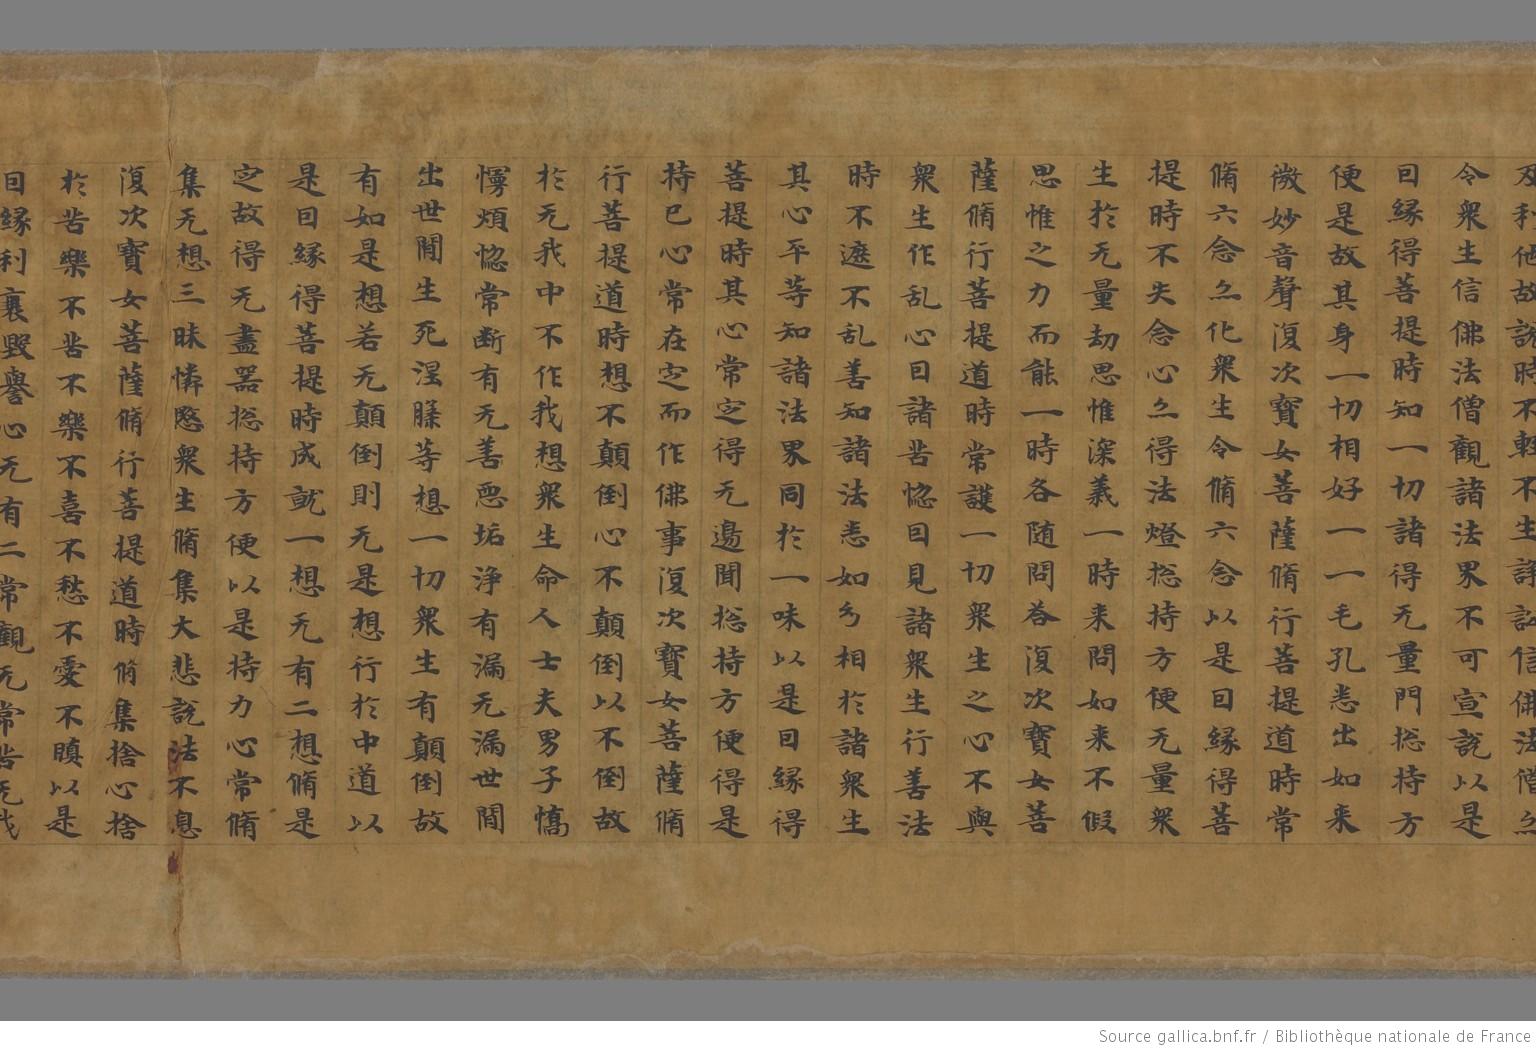 及利他故說時不輕不生誹謗信佛法僧亦
令衆生信佛法僧觀諸法界不可宣說以是
囙緣得菩提時知一切諸得无量門捴持方
便是故其身一切相好一一毛孔悉出如来
微妙音聲復次寶女菩薩脩行菩提道時常
脩六念亦化衆生令脩六念以是囙緣得菩
提時不失念心亦得法燈捴持方便无量衆
生於无量劫思惟深義一時来問如来不假
思惟之力而能一時各随問答復次寶女菩
薩脩行菩提道時常護一切衆生之心不與
衆生作乱心囙諸苦惱囙見諸衆生行善法
時不遮不乱善知諸法悉如幻相於諸衆生
其心平等知諸法界同於一味以是囙緣得
菩提時其心常定得无邊聞捴持方便得是
持已心常在定而作佛事復次寶女菩薩脩
行菩提道時想不顛倒心不顛倒以不倒故
於无我中不作我想衆生命人士夫男子憍
慢煩惱常断有无善惡垢浄有漏无漏世間
出世間生死涅槃等想一切衆生有顛倒故
有如是想若无顛倒則无是想行於中道以
是囙緣得菩提時成就一想无有二想脩是
定故得无盡器捴持方便以是持力心常脩
集无想三昧憐愍衆生脩集大悲說法不息
復次寶女菩薩脩行菩提道時脩集捨心捨
於苦樂不苦不樂不喜不愁不愛不瞋以是
囙緣利衰毀譽心无有二常觀无常苦无我
Source gallica.bnf.fr / Bibliothèque nationale de France